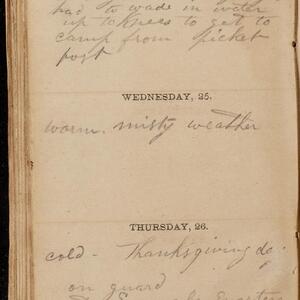 had to wade in water
up to knees to get to
camp from picket
post
WEDNESDAY, 25.
warm. misty weather
THURSDAY, 26.
cold - Thanksgiving day
on guard